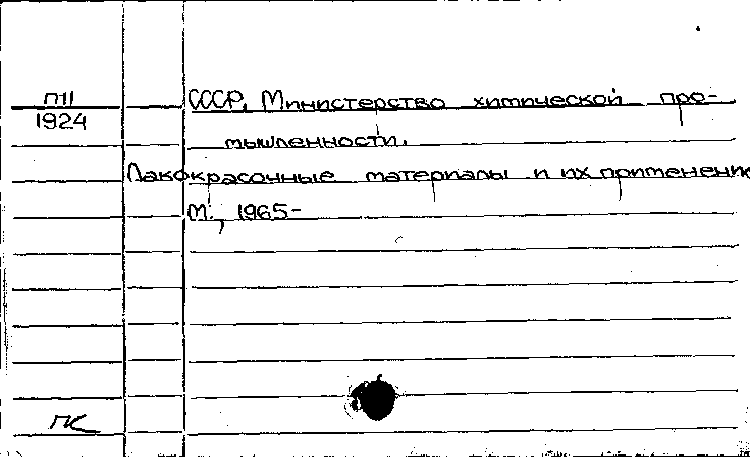 П11
1924
СССР. Министерство химической про-
мышленности.
Лакокрасочные материалы и их применение
М., 1965-
ПК